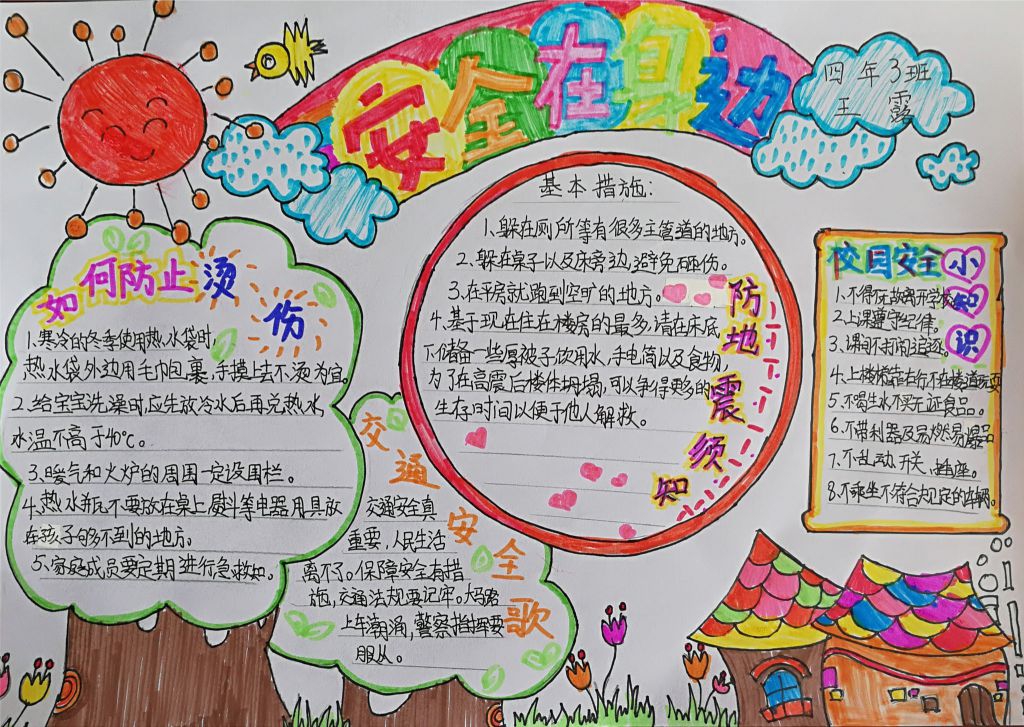 安全在身边
四年3班
王露
如何防止烫伤
1、寒冷的冬季使用热水袋时,
热水袋外边用毛巾包裹,手摸上去不烫为宜。
2、给宝宝洗澡时,应先放冷水后再兑热水,
水温不高于40℃。
3、暖气和火炉的周围一定设围栏。
4、热水瓶不要放在桌上,熨斗等电器用具放
在孩子够不到的地方。
5、家庭成员要定期进行急救知。
交通安全歌
交通安全真
重要,人民生活
离不了。保障安全有措
施,交通法规要记牢。大马路
上车潮涌,警察指挥要
服从。
防地震须知
基本措施:
1、躲在厕所等有很多主管道的地方。
2、躲在桌子以及床旁边,避免砸伤。
3、在平房就跑到空旷的地方。
4、基于现在住在楼房的最多,请在床底
下储备一些厚被子饮用水,手电筒以及食物,
为了在高震后楼体坍塌,可以争得更多的
生存时间以便于他人解救。
校园安全小知识
1、不得无故离开学校
2、上课遵守纪律。
3、课间不打闹追逐。
4、上楼梯靠右行不在楼道玩耍
5、不喝生水不买无证食品。
6、不带利器及易燃易爆品
7、不乱动开关、插座。
8、不乘坐不符合规定的车辆。